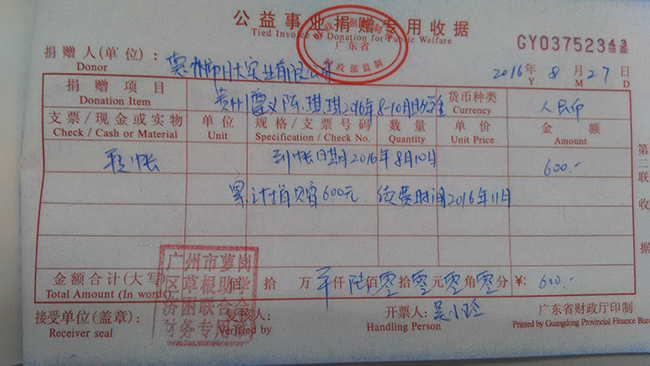 公益事业捐赠专用收据
Tied Invoice of Donation for Public Welfare
广东省
财政部监制
GY03752343
捐赠人(单位):
Donor 实业有限公司
2016年 8月 27日
Y M D
捐赠项目 贵州遵义陈琪琪2016年8-10月助学金 货币种类 人民币
Donation Item Currency
支票/现金或实物 单位 规格/支票号码 数量 单价 金额
Check / Cash or Material Unit Specification / Check No. Quantity Unit Price Amount
转帐 到帐日期2016年8月10日 600.-
累计捐赠600元 续费时间2016年11月
第二联 收据
金额合计(大写) 佰 拾 万 仟陆佰零拾零元零角零分 ¥: 600.-
Total Amount (In words)
广州市萝岗
区草根助学
济困联合会
财务专用章
接受单位(盖章): 复核人: 开票人: 吴小玲 广东省财政厅印制
Receiver seal Verified by Handling Person Printed by Guangdong Provincial Finance Bureau